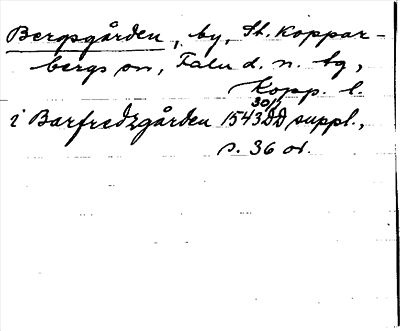 Bergsgården, by, St. Koppar-
bergs sn, Falu d. n. bg,
Kopp. l.
i Barfredzgården 1543 30/7 DD suppl.,
s. 36 or.